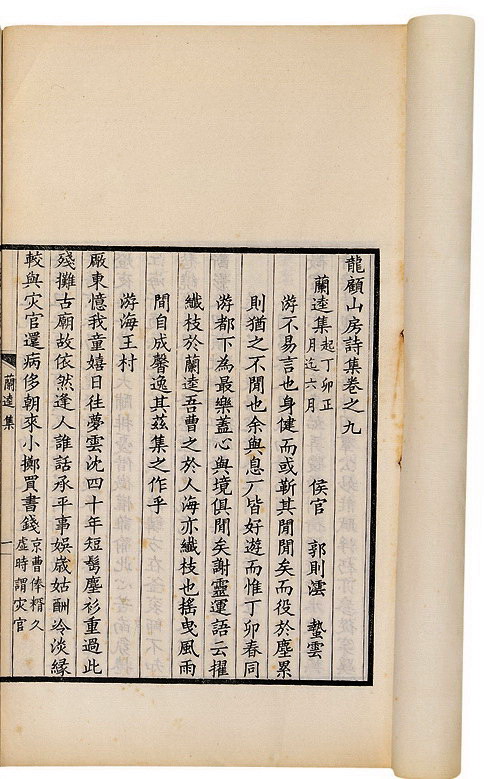 龍顧山房詩集卷之九
蘭逵集起丁卯正月迄六月 侯官 郭則澐 蟄雲
游不易言也身健而或靳其閒閒矣而役於塵累
則猶之不閒也余與息厂皆好遊而惟丁卯春同
游都下為最樂蓋心與境俱閒矣謝靈運語云擢
纖枝於蘭逵吾曹之於人海亦纖枝也搖曳風雨
間自成馨逸其茲集之作乎
游海王村
廠東憶我童嬉日往夢雲沈四十年短鬢塵衫重過此
殘攤古廟故依然逢人誰話承平事娛歲姑酬冷淡緣
較與灾官還病侈朝來小擲買書錢京曹俸糈久虛時謂灾官
蘭逵集
一